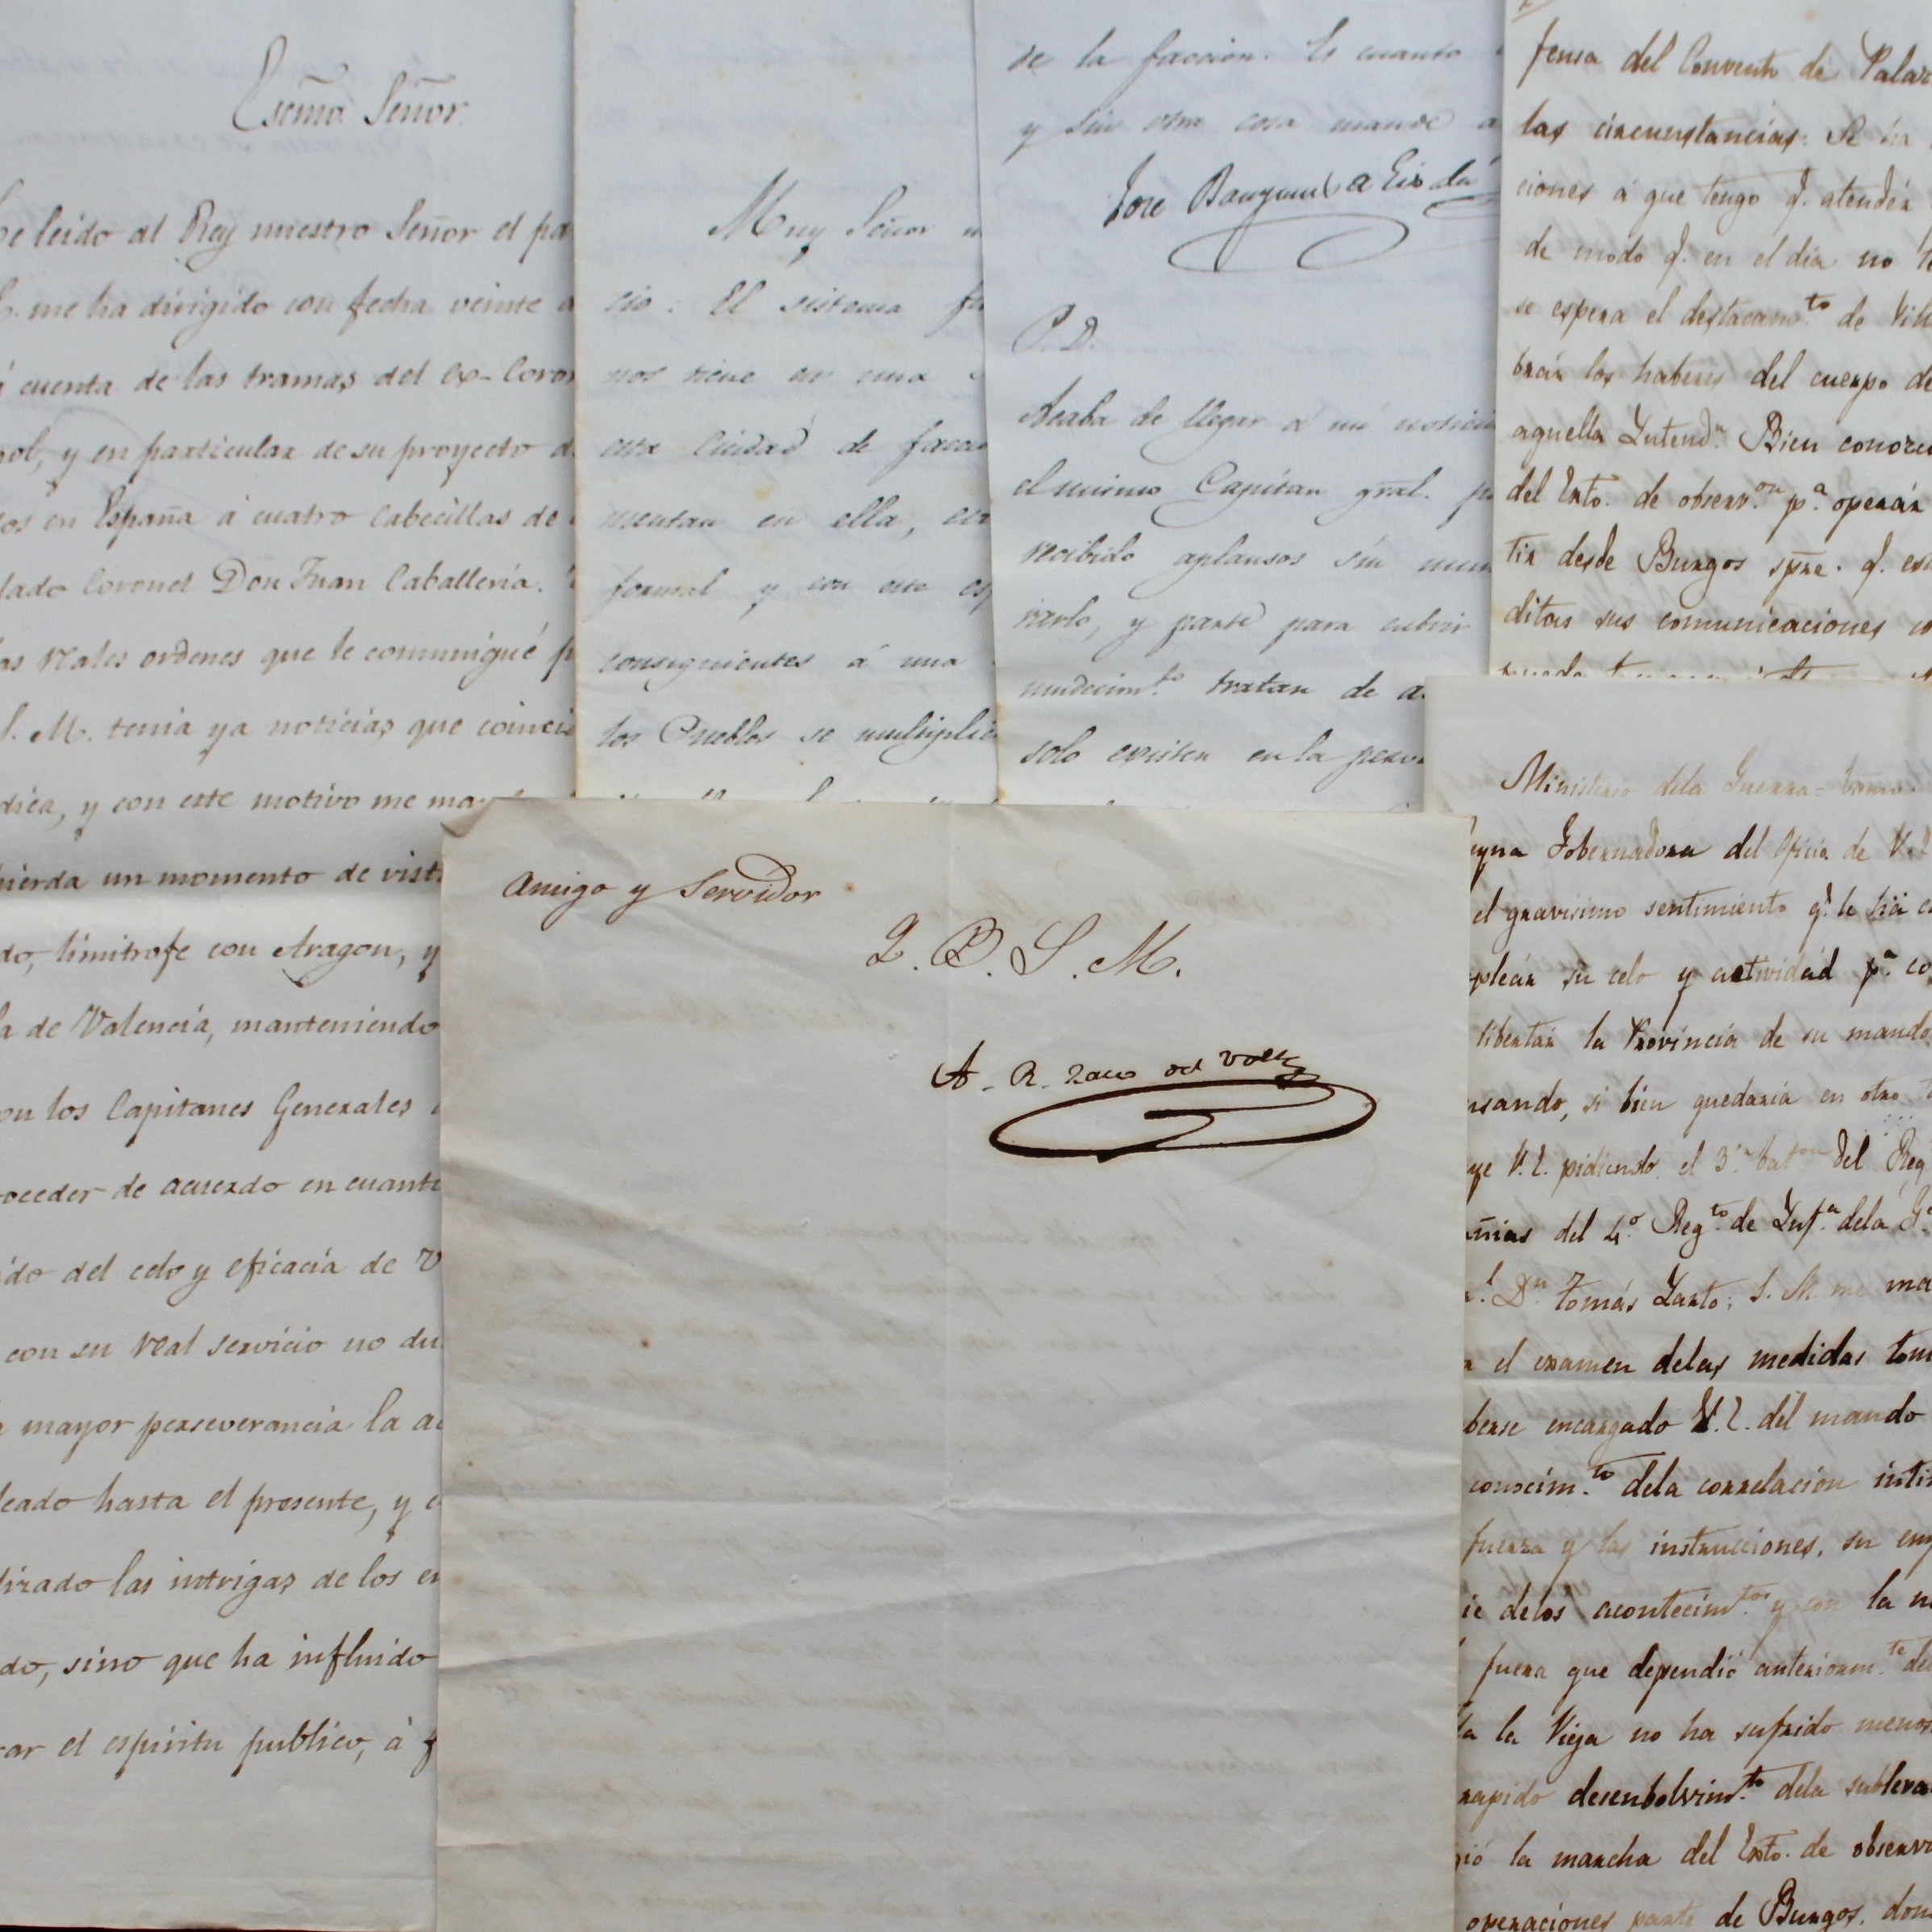 Escmo. Señor.
he leido al Rey nuestro Señor el pa
me ha dirigido con fecha veinte
cuenta de las tramas del ex-Coro
nol, y en particular de su proyecto d
os en España á cuatro Cabecillas de
lado Coronel Don Juan Caballería.
as Reales ordenes que le comuniqué p
S. M. tenia ya noticias que coinci
dica, y con este motivo me ma
ierda un momento de vist
do, limitrofe con Aragon, y
a de Valencia, manteniendo
on los Capitanes Generales
oceder de acuerdo en cuant
ido del celo y eficacia de V
con su Real servicio no du
mayor perseverancia la a
leado hasta el presente, y
lizado las intrigas de los en
do, sino que ha influido
rar el espiritu publico, á f
Muy Señor m
cio: El sistema
nos tiene en una
esta Ciudad de facc
mentan en ella,
formal y con este esp
consiguientes á una
los Pueblos se multiplic
de la faccion. Es cuanto
y sin otra cosa mande
Jose
P.D.
Acaba de llegar á mi notici
el mismo Capitan gral. p
recibido aplausos sin num
varlo, y parte para cubrir
mudecimto. tratan de a
solo existen en la pers
fensa del Convento de Palaz
las circunstancias. Se ha
ciones á que tengo q. atendér
de modo q. en el dia no
se espera el destacamto. de Vill
brár los haberes del cuerpo de
aquella Intenda. Bien conoce
del Exto. de observon. pa. operár
tir desde Burgos spre. q. es
ditas sus comunicaciones
Amigo y Servidor
Q. B. S. M.
A. R. Zarco del Valle
Ministerio dela Guerra=
eyna Gobernadora del oficio de V. E
el gravisimo sentimiento q. le há c
pleár su celo y actividad pa. co
libertár la Provincia de su mando
nsando, si bien quedaria en otro
ye V. E. pidiendo el 3er. baton. del Reg
añias del 4o. Regto. de Infa. dela Ga
l. Dn. Tomás Yarto; S. M. me ma
a el examen delas medidas tom
berse encargado V. E. del mando
conocimto. dela correlacion inti
fuerza y las instrucciones, su em
ie delos acontecimtos. y con la n
fuerza que dependió anteriormte. de
la la Vieja no ha sufrido menos
rapido desenbolvimto. dela subleva
ió la marcha del Exto. de observa
operaciones parte de Burgos, don